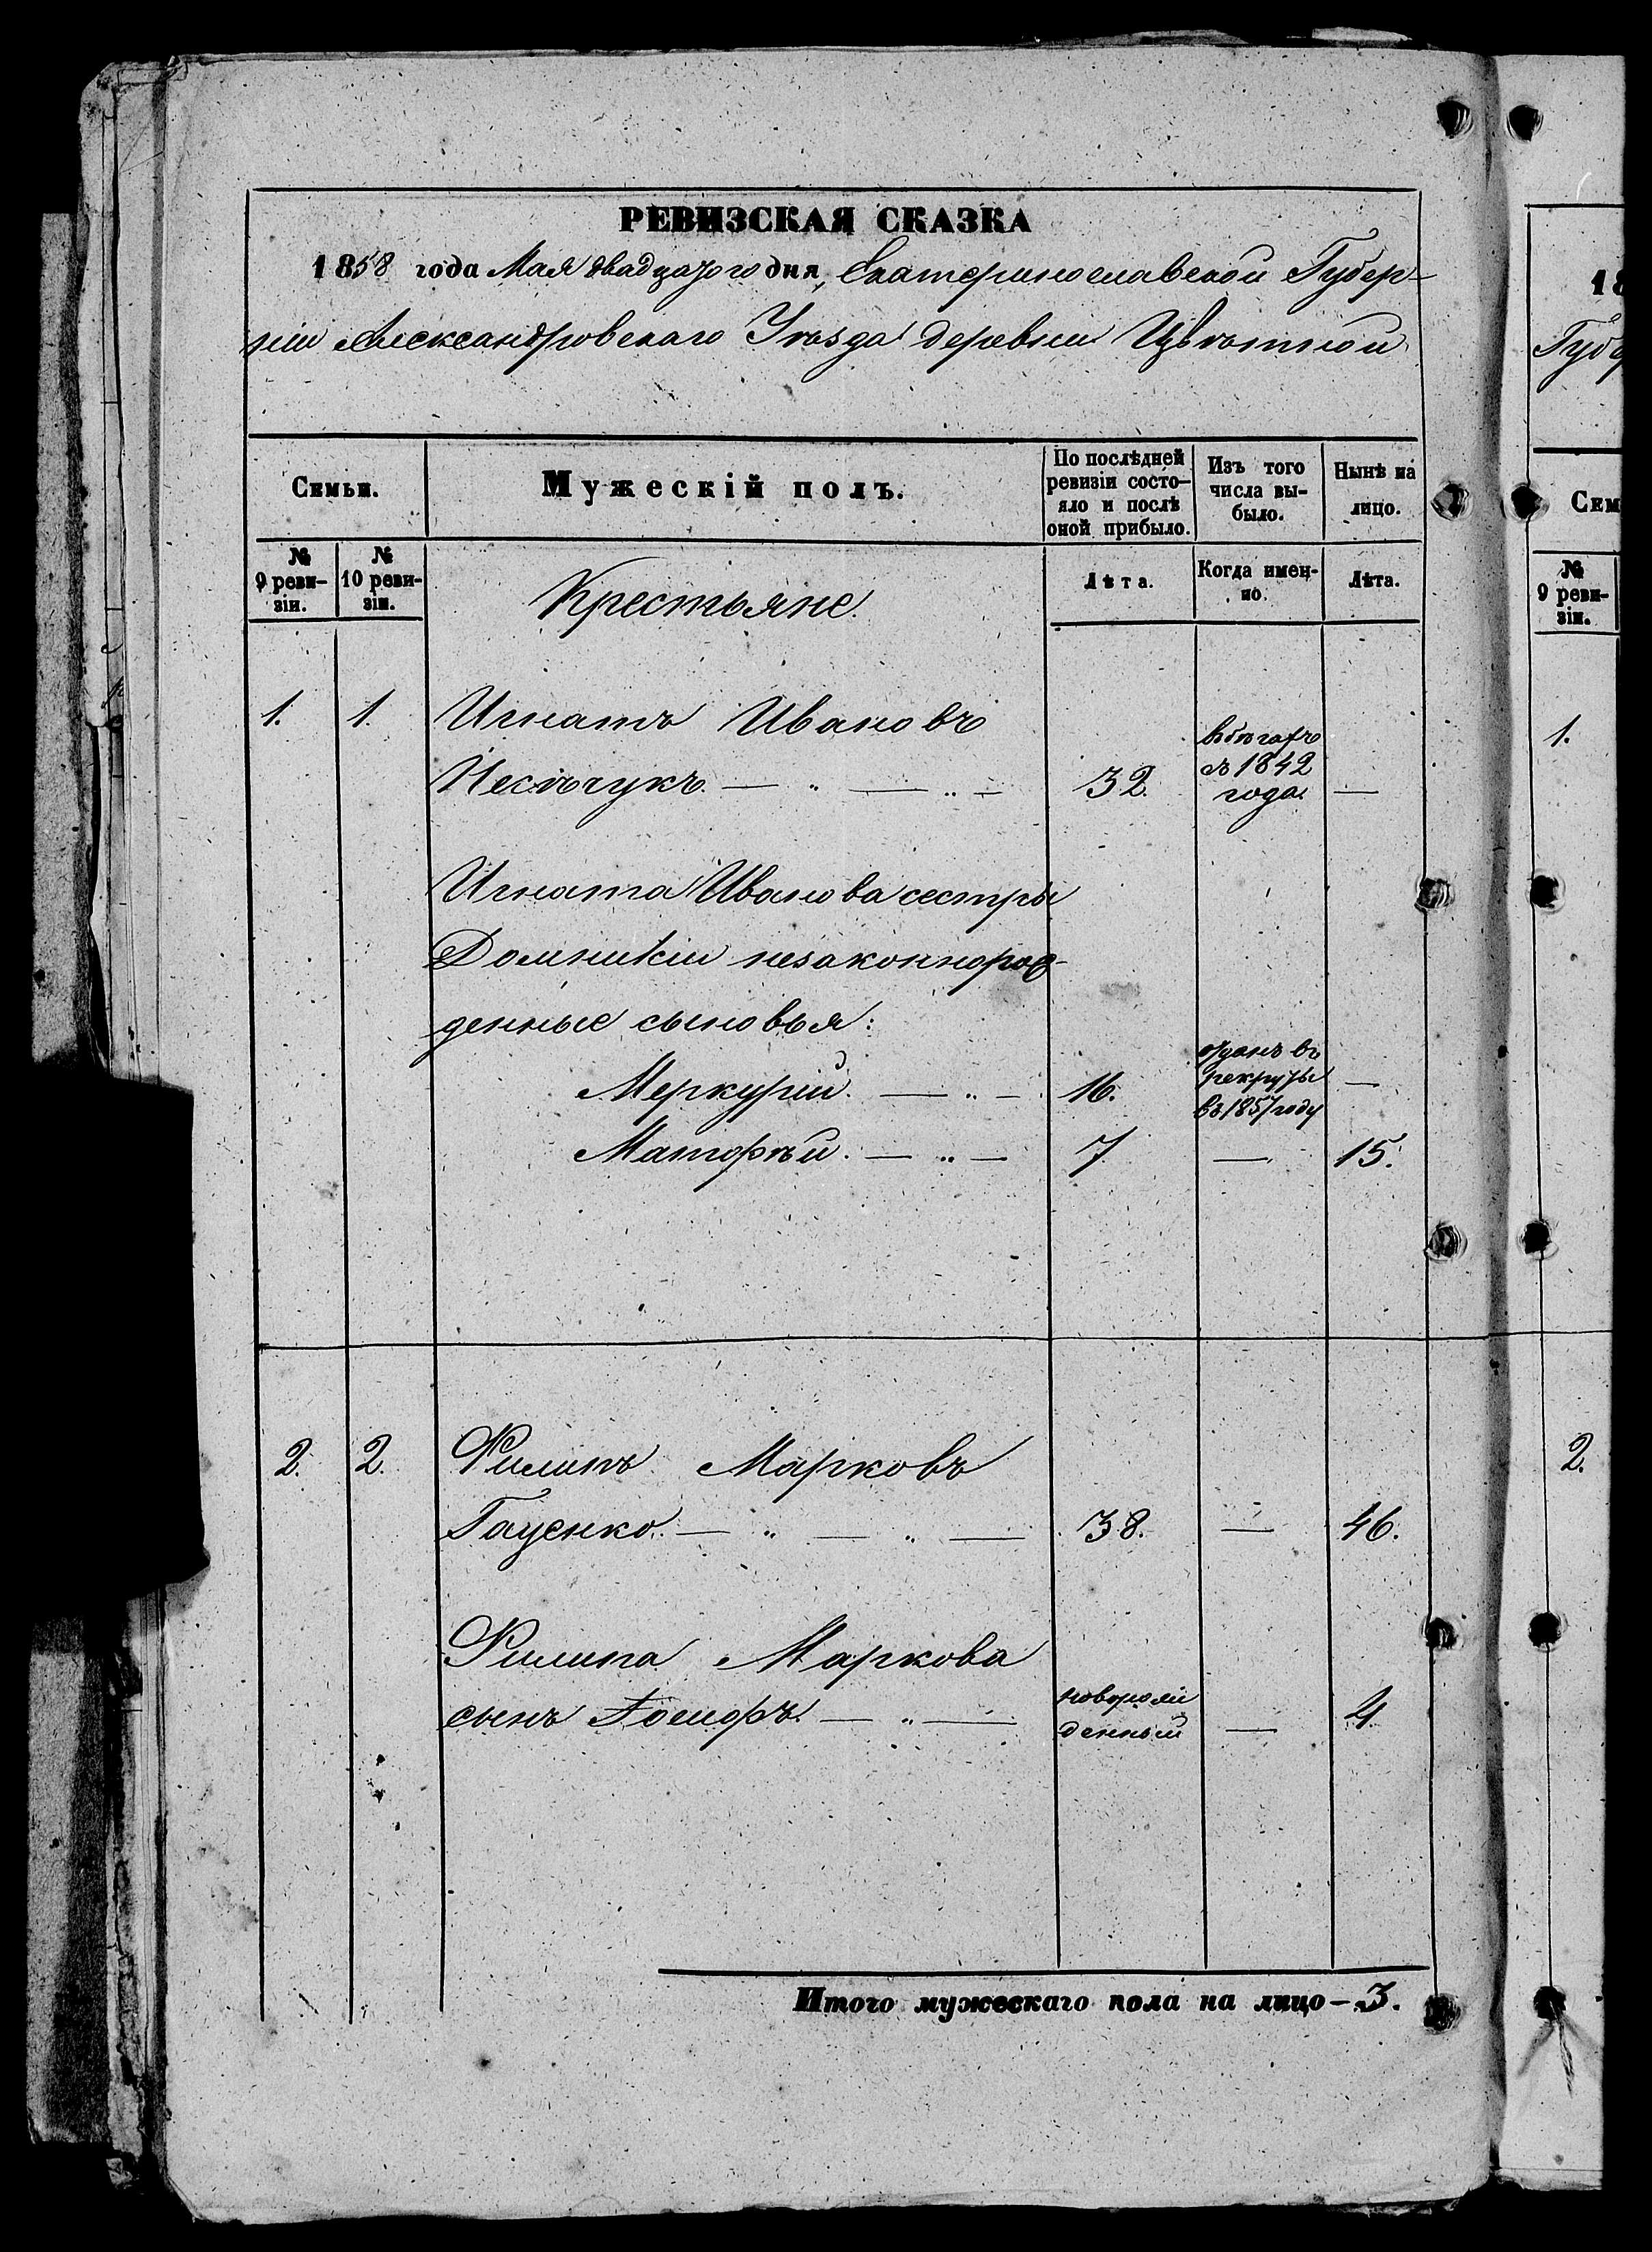 РЕВИЗСКАЯ СКАЗКА
1858 года Мая двадцатого дня, Екатеринославской Губер-
ніи Александровскаго Уѣзда деревни Цвѣтной
Семьи.
Мужескій полъ.
По послѣдней
ревизіи состо-
яло и послѣ
оной прибыло.
Изъ того
числа вы-
было.
Нынѣ на
лицо.
№
9 реви-
зіи.
№
10 реви-
зіи.
Крестьяне
Лѣта.
Когда имен-
но.
Лѣта.
1. 1. Игнатъ Ивановъ
32. въ бѣгахъ
съ 1842
года —
Игната Иванова сестры
Домникіи незаконнорож-
денные сыновья:
Меркурій. — „ — 16. отданъ въ
рекруты
въ 1857 году —
Матфѣй. — „ — 7 — 15.
2. 2. Филипъ Марковъ
Гаценко. — „ — „ — 38. — 46.
Филипа Маркова
сынъ Іосифъ. — „ — новорож
денный — 4
Итого мужескаго пола на лицо — 3.
18
Губе
Сем
№
9 реви-
зіи.
1.
2.